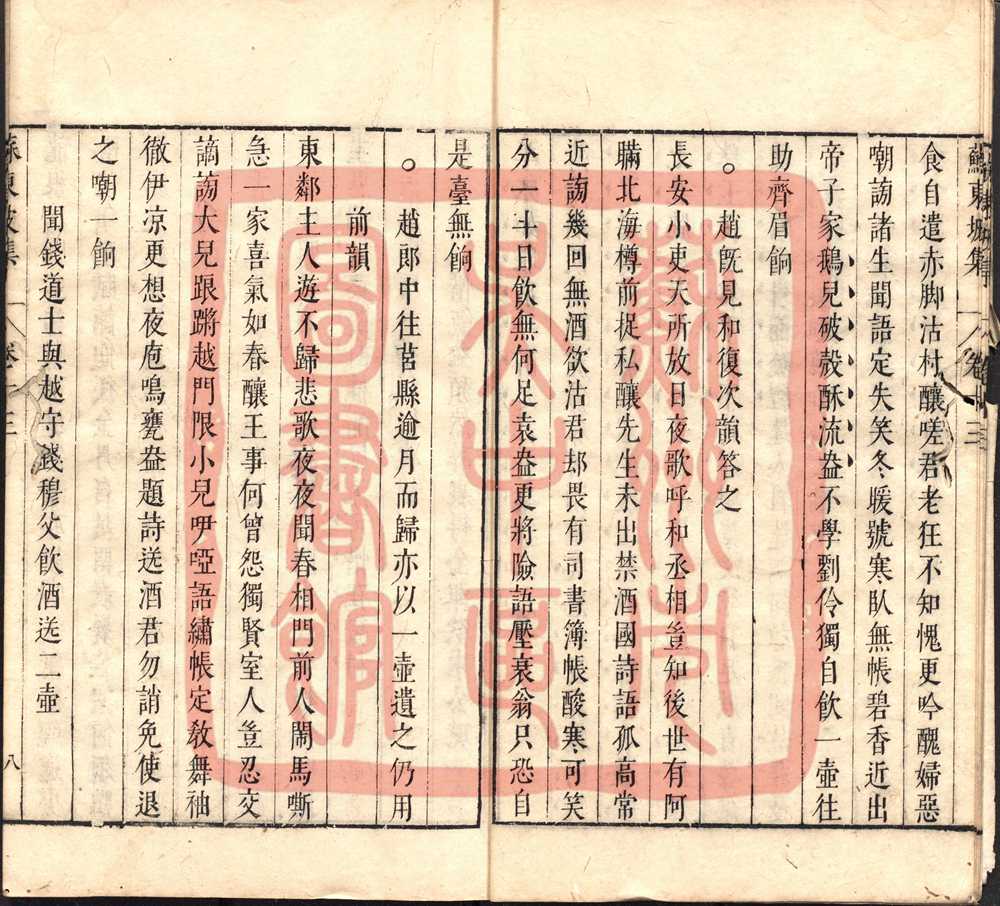 蘇東坡集 卷十三
食自遣赤脚沽村釀嗟君老狂不知愧更吟醜婦惡
嘲謗諸生聞語定失笑冬暖號寒臥無帳碧香近出
帝子家鵝兒破殼酥流盎不學劉伶獨自飲一壺往
助齊眉餉
。趙旣見和復次韻答之
長安小吏天所放日夜歌呼和丞相豈知後世有阿
瞞北海樽前捉私釀先生未出禁酒國詩語孤高常
近謗幾回無酒欲沽君却畏有司書簿帳酸寒可笑
分一斗日飲無何足袁盎更將險語壓衰翁只恐自
是臺無餉
。趙郎中往莒縣逾月而歸亦以一壺遺之仍用
前韻
東鄰主人遊不歸悲歌夜夜聞春相門前人鬧馬嘶
急一家喜氣如春釀王事何曾怨獨賢室人豈忍交
謫謗大兒踉蹡越門限小兒咿啞語繡帳定教舞袖
徹伊凉更想夜庖鳴甕盎題詩送酒君勿誚免使退
之嘲一餉
聞錢道士與越守錢穆父飲酒送二壺
八
蘇州大吳氏圖書館